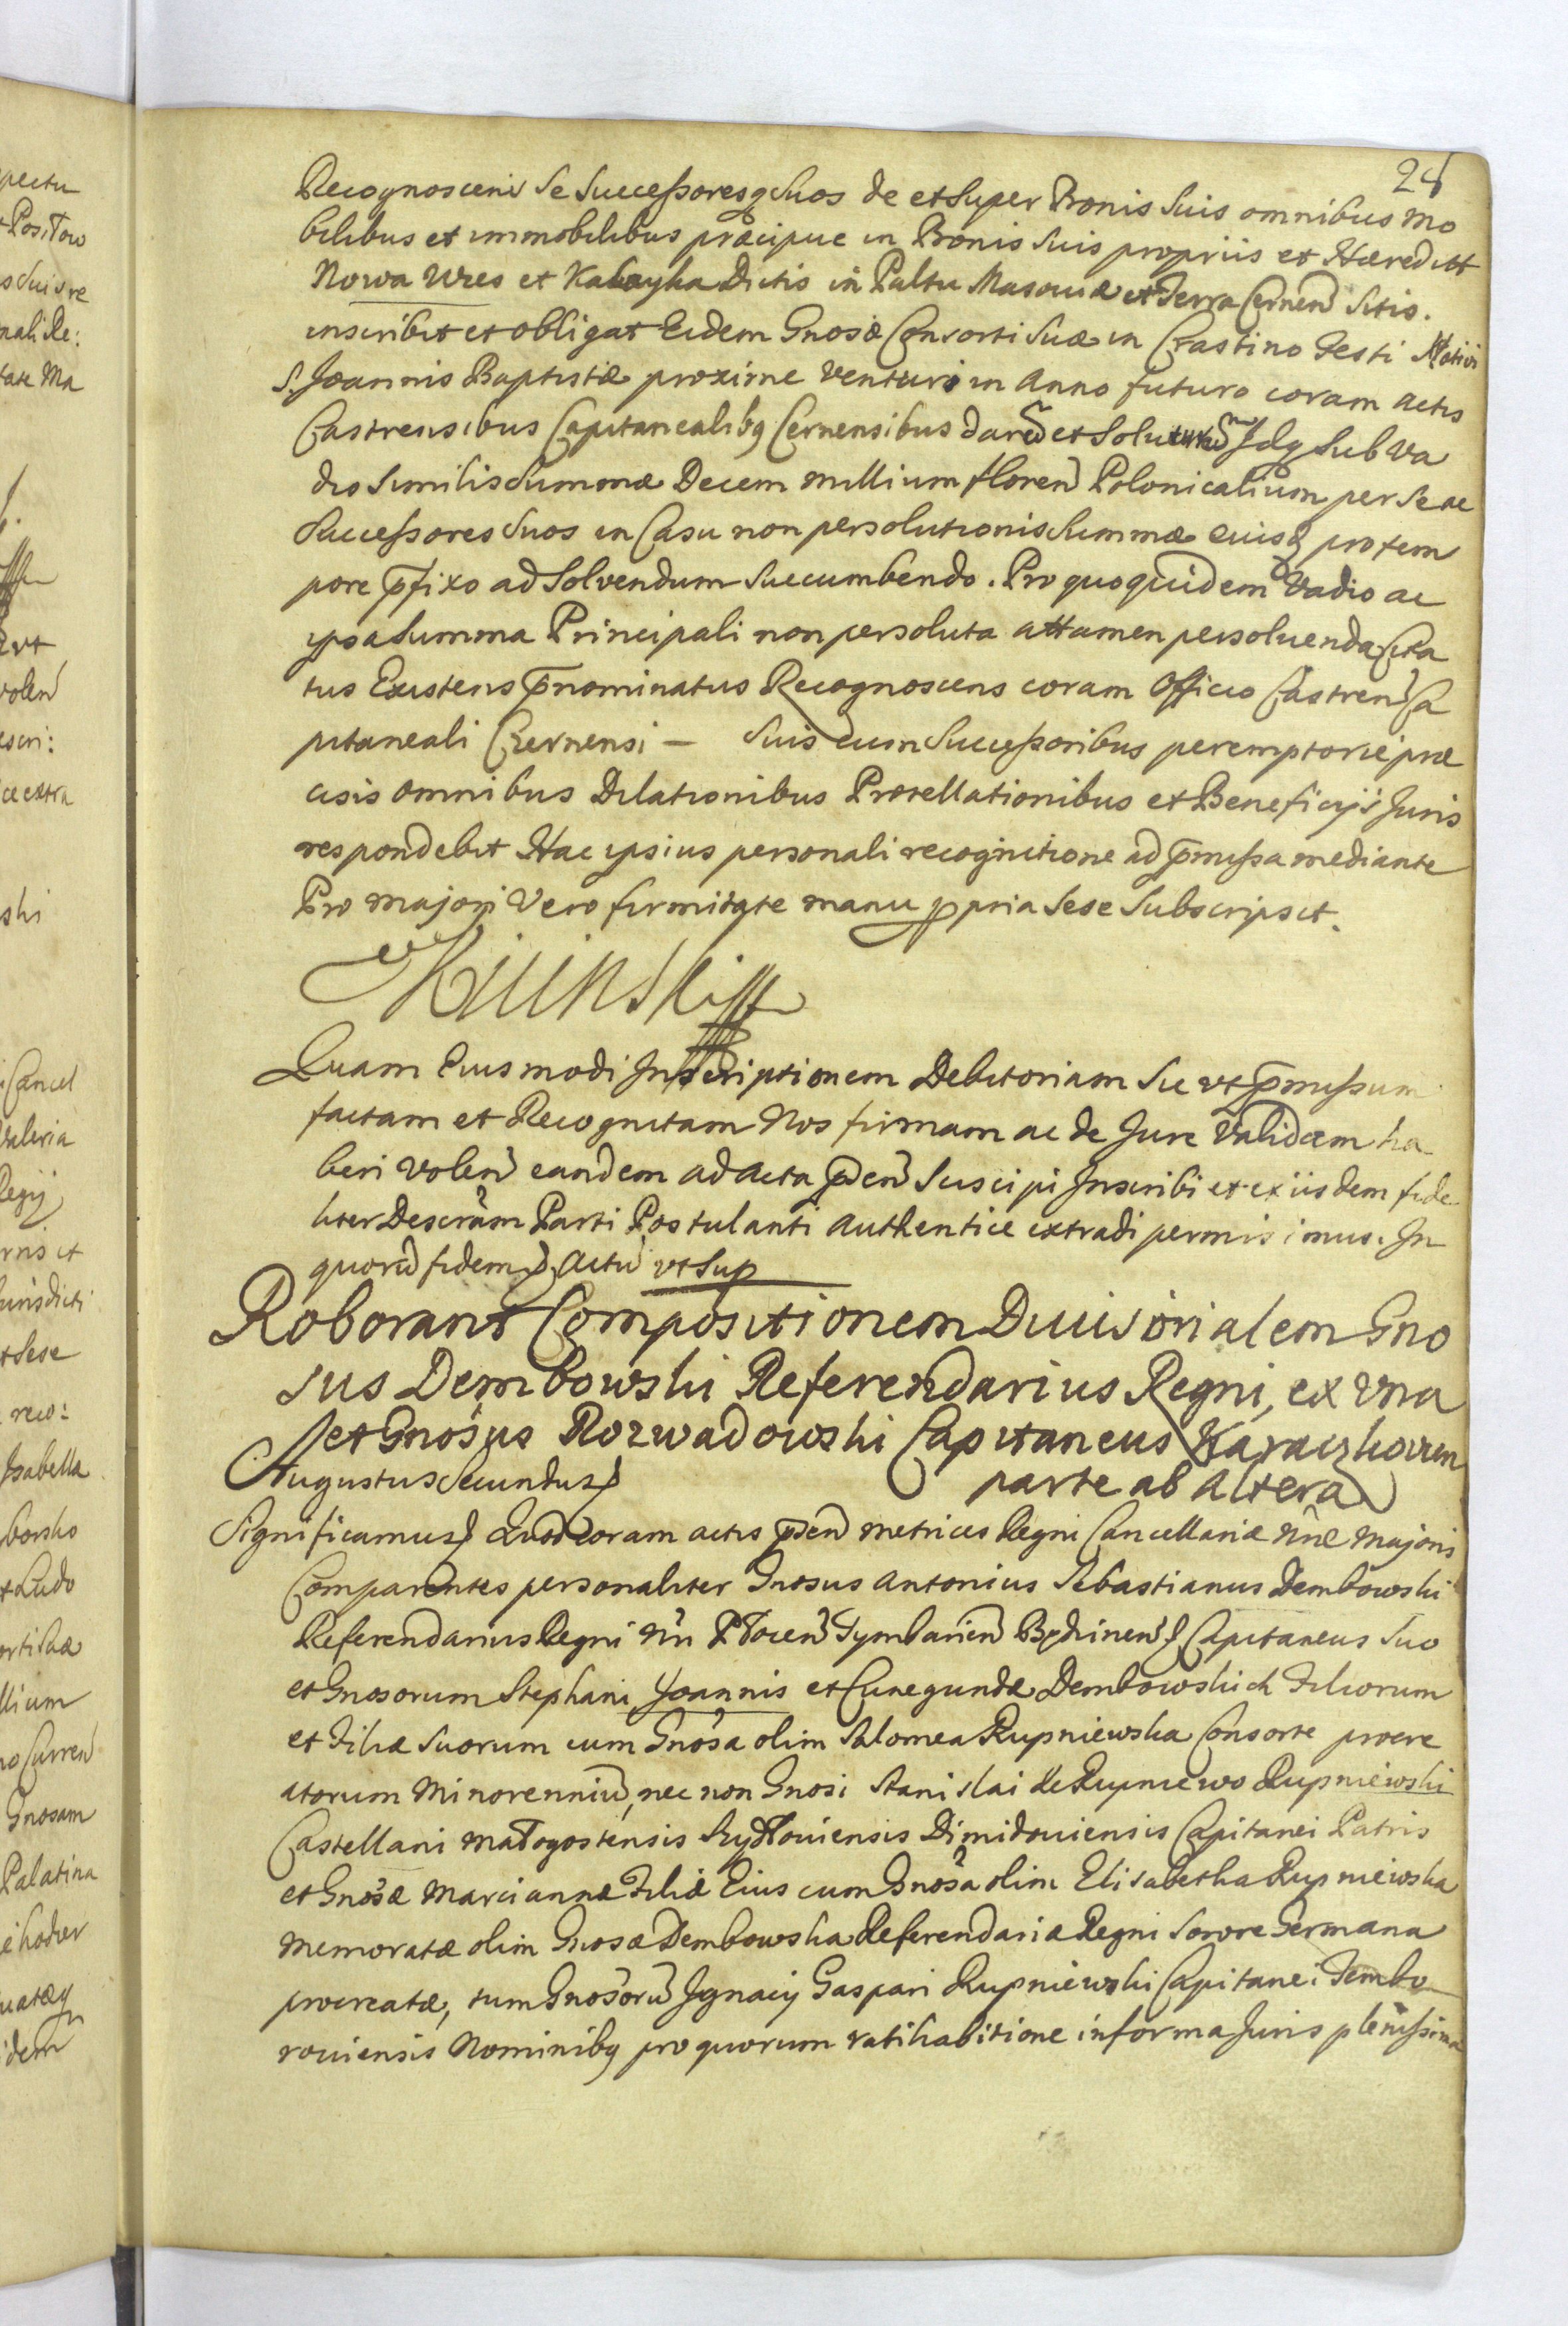 24
Recognoscens Se Successoresq Suos de et Super Bonis Suis omnibus mo
bilibus et immobilibus præcipue in Bonis Suis propriis et Hæreditt
Nowa Wies et Kabayka Dictis in Paltu Masoviæ et Terra Cernen Sitis.
inscribit et obligat Eidem Gnosæ Consorti Suæ in Crastino Festi Nativi
S. Joannis Baptistæ proxime venturi in Anno futuro coram actis
Castrensibus Capitanealibq Cernensibus dared et Solutur Idq Sub va
dio Similis Summæ Decem millium floren Polonicalium per Se ac
Successores Suos in Casu non persolutionis Summæ eiusq pro tem
pore p̄fixo ad Solvendum Succumbendo. Pro quo quidem Vadio ac
ipsa Summa Principali non persoluta attamen persolvenda Cita
tus Existens p̄nominatus Recognoscens coram Officio Castren Ca
pitaneali Czernensi – Suis cum Successoribus peremptorie præ
cisis omnibus Dilationibus Protellationibus et Beneficijs Juris
respondebit Hac ipsius personali recognitione ad p̄missa mediante
Pro majori Vero firmitate manu ppria Sese Subscripsit.
Quam Eiusmodi Inscriptionem Debitoriam Sic vt p̄missum
factam et Recognitam Nos firmam ac de Jure Validam ha
beri volen eandem ad acta p̄sen Suscipi Inscribi et ex iisdem fide
liter Descrām Parti Postulanti authentice extradi permisimus. In
quorū fidem Actū vt Sup
Roborant Compositionem Divisorialem Gno
sus Dembowski Referendarius Regni, ex vna
et Gnosus Rozwadowski Capitaneus Karaczkovien
parte ab altera
Augustus Secundus
Significamus Quod coram actis p̄sen metrices Regni Cancellariæ Nr̄æ Majoris
Comparentes personaliter Gnosus Antonius Sebastianus Dembowski
Referendarius Regni Nr̄ Płocen Tymbarien Będzinen Capitaneus Suo
et Gnosorum Stephani Joannis et Cunegundæ Dembowskich Filiorum
et Filiæ Suorum cum Gnosa olim Salomea Rupniewska Consorte procre
atorum Minorenniū, nec non Gnosi Stanislai de Rupniewo Rupniewski
Castellani małogostensis Dimidoviensis Capitanei Patris
et Gnosæ Mariannæ Filiæ Eius cum Gnosa olim Elisabetha Rupniewska
memoratæ olim Gnosæ Dembowska Referendariæ Regni Sorore Germana
procreatæ, tum Gnosorū Ignacij Gaspari Rupniewski Capitanei Tembo
roviensis Nominibq pro quorum ratihabitione in forma Juris plenissima